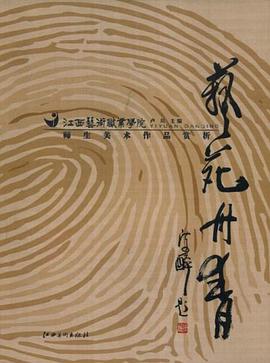 江西藝術職業學院
主编
YIYUAN DANQING
师生美术作品赏析
藝苑丹青
江西美术出版社